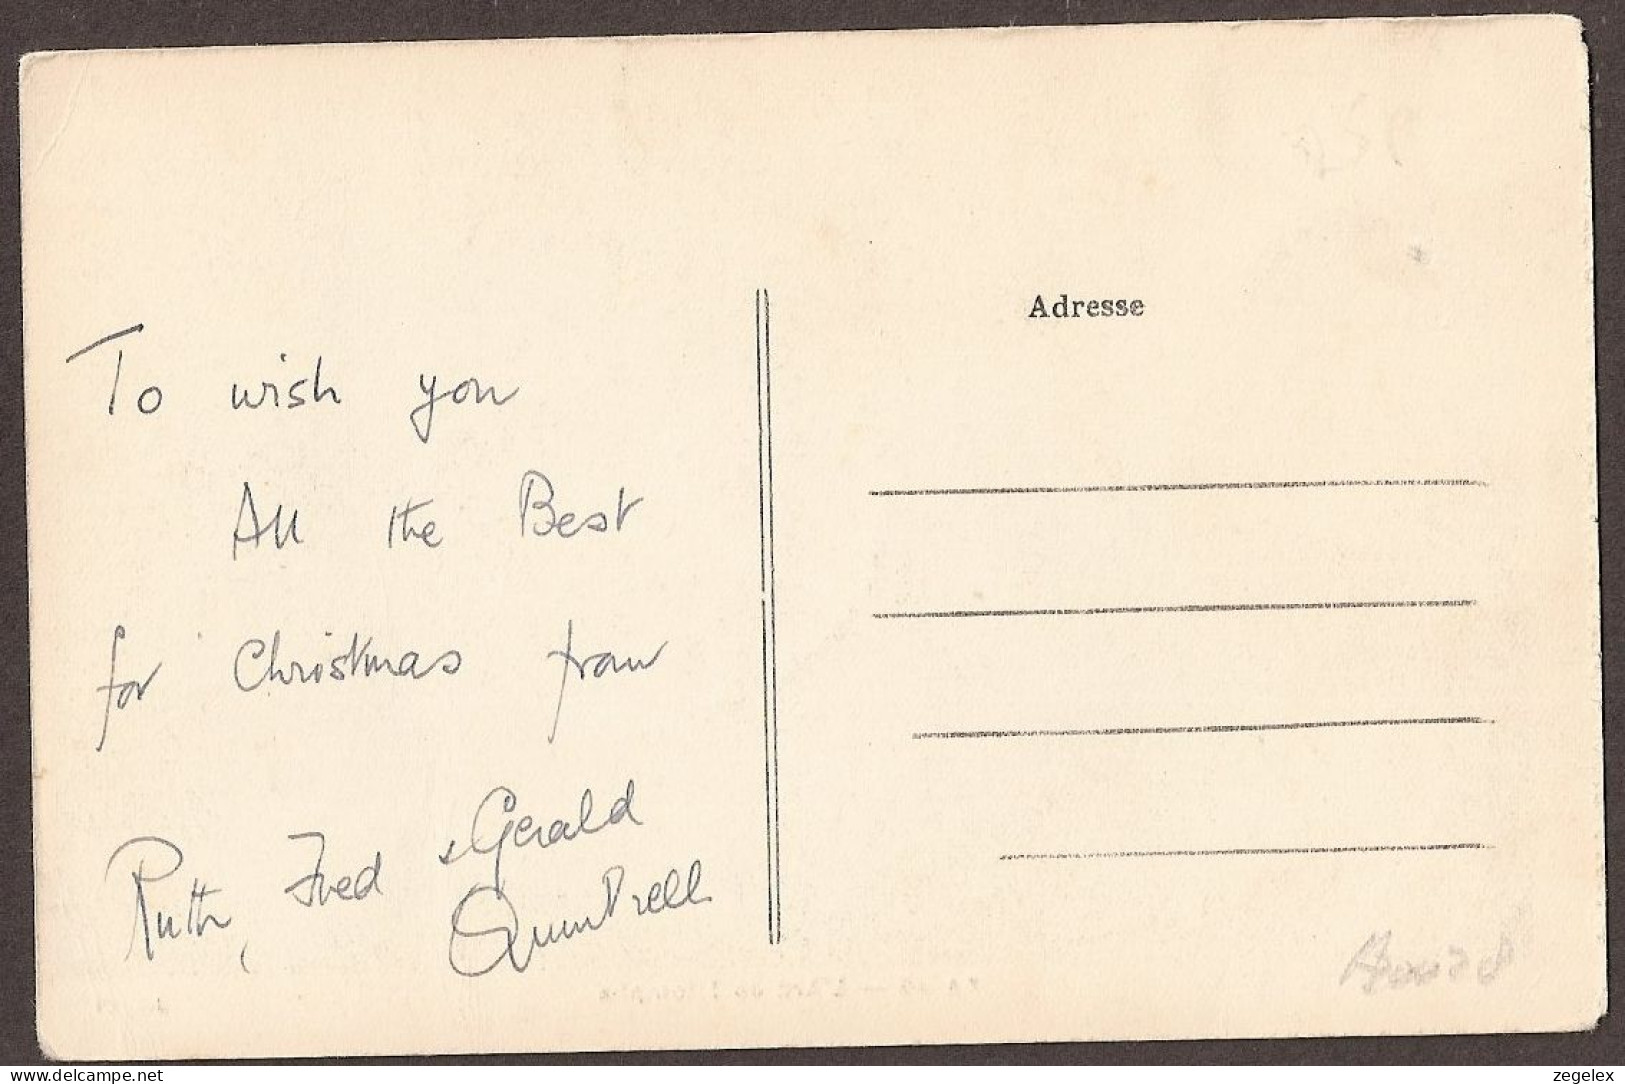 To wish you
All the Best
for Christmas from
Ruth, Fred & Gerald
Adresse
www.delcampe.net
zegelex